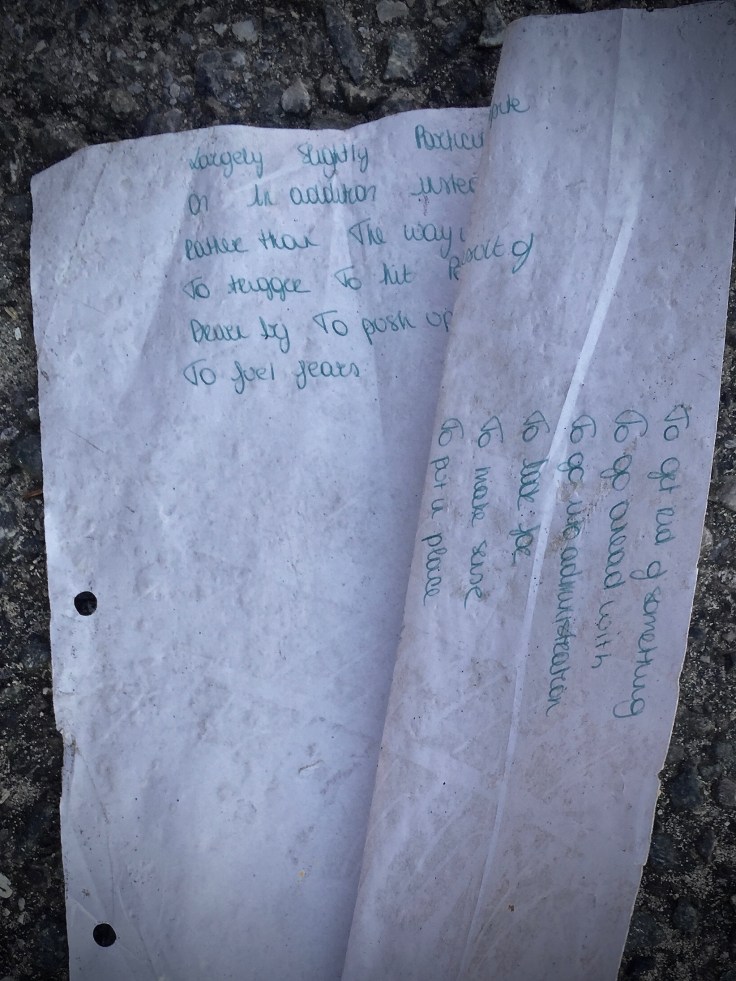 Largely Slightly Particu
Or In addition Instead
Rather than The way
To trigger To hit Result of
Drive by To push up
To fuel fears
To get rid of something
To go ahead with
To go into administration
To for
To make sure
To put a please